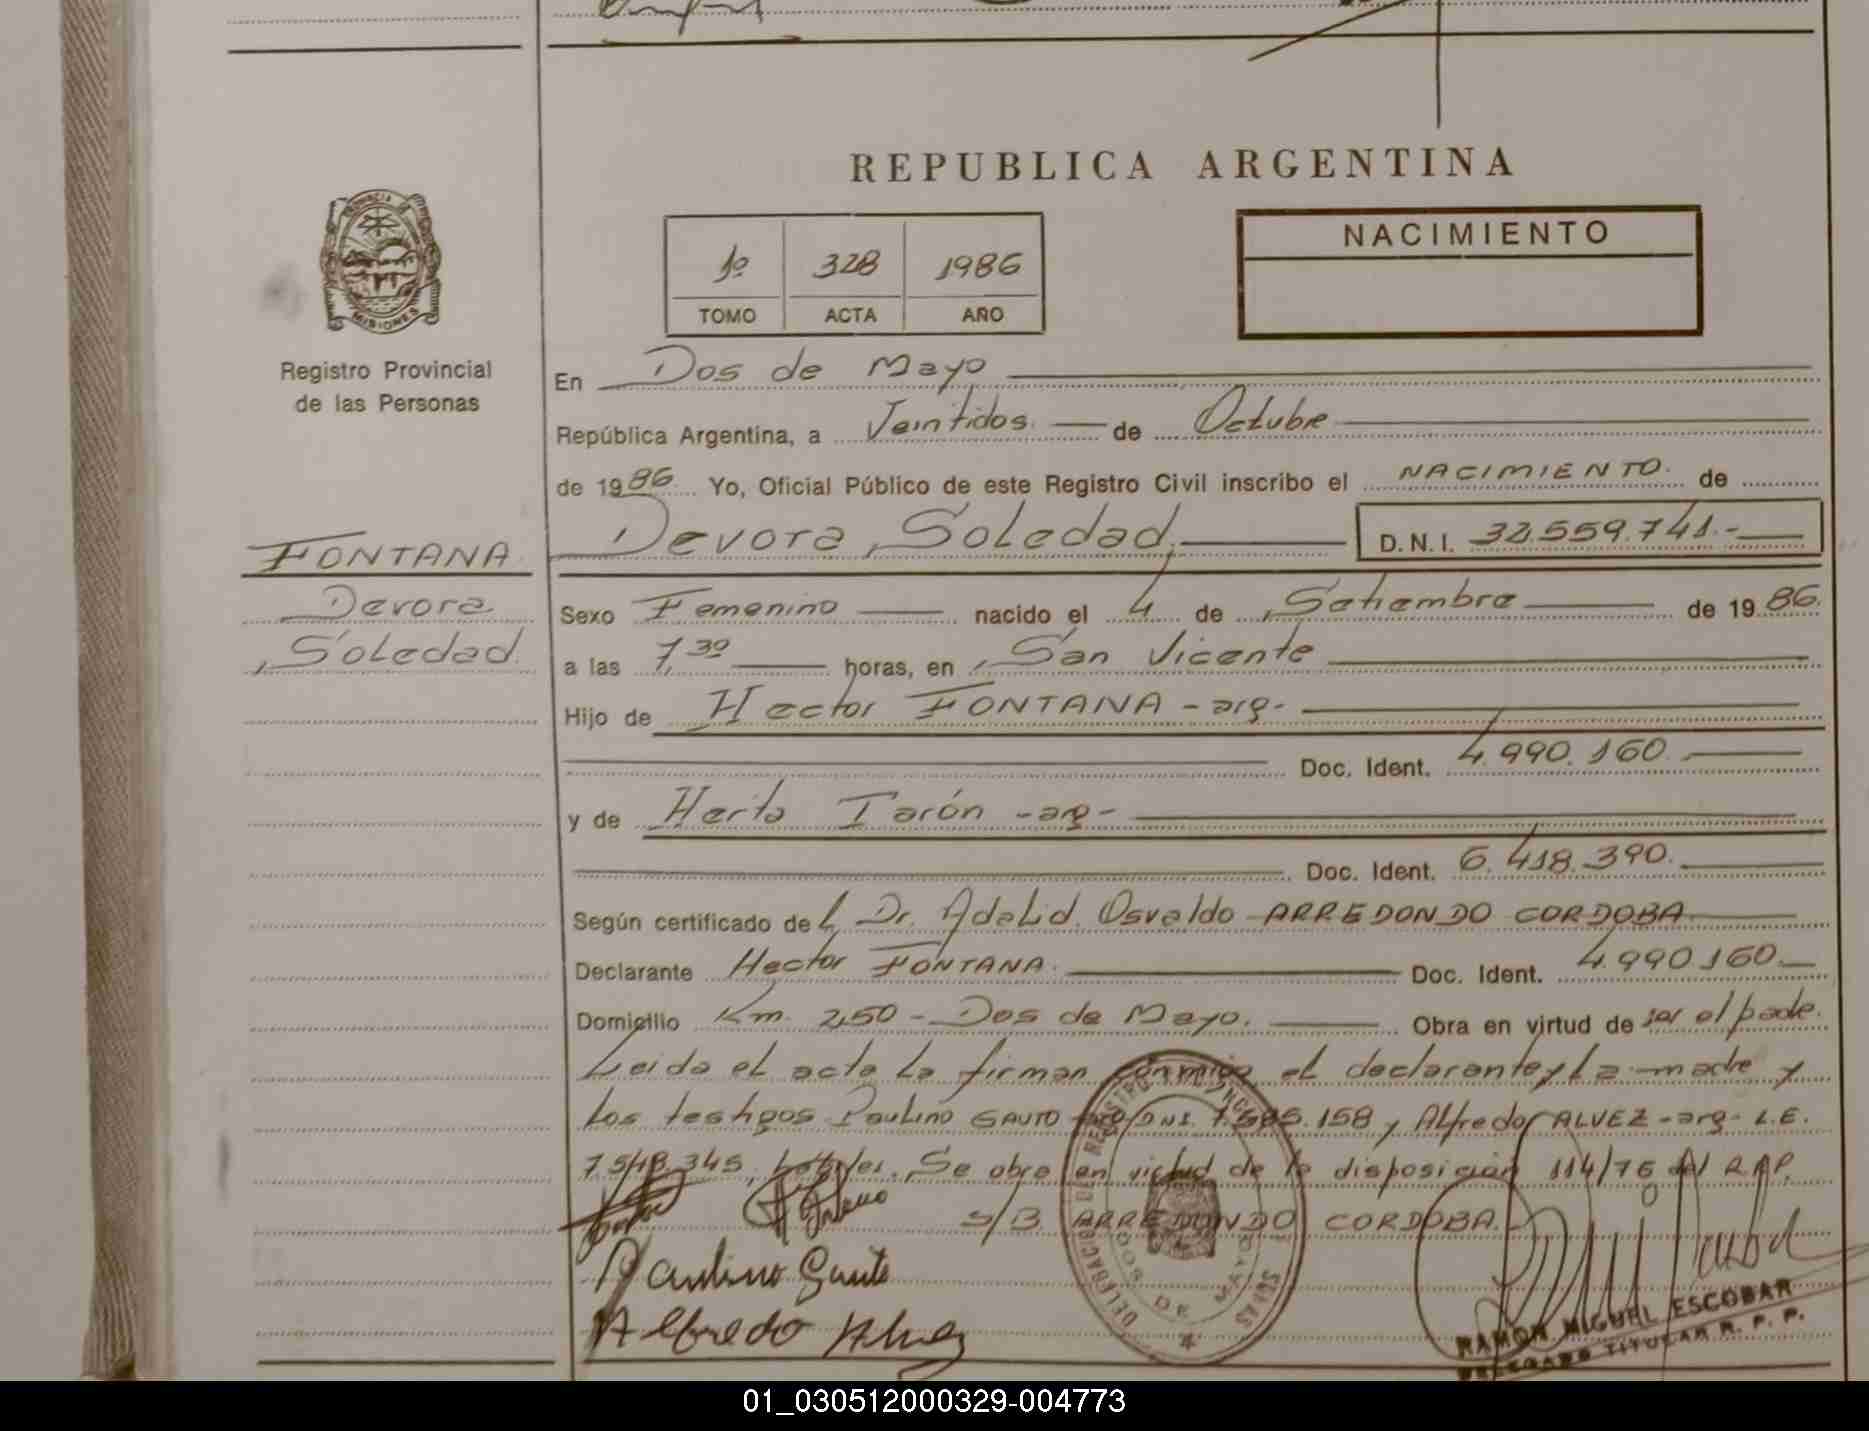 REPUBLICA ARGENTINA
PROVINCIA DE
MISIONES
Registro Provincial
de las Personas
1º 328 1986
TOMO ACTA AÑO
NACIMIENTO
En Dos de Mayo
República Argentina, a Veintidos de Octubre
de 1986 Yo, Oficial Público de este Registro Civil inscribo el NACIMIENTO. de
Devora Soledad D.N.I. 32.559.741.-
FONTANA
Devora
Soledad
Sexo Femenino nacido el 4 de Setiembre de 1986.
a las 7,30 horas, en San Vicente
Hijo de Hector FONTANA - arg-
Doc. Ident. 4.990.160
y de Herta Tarón - arg-
Doc. Ident. 6.418.390.
Según certificado del Dr. Adalid Osvaldo ARREDONDO CORDOBA
Declarante Hector FONTANA. Doc. Ident. 4.990.160.
Domicilio Km. 250 - Dos de Mayo. Obra en virtud de ser el padre.
Leida el acta la firman conmigo el declarante y la madre y
los testigos Paulino GAUTO arg DNI. 7.585.158 y Alfredo ALVEZ - arg - L.E.
7.548.345, habiles. Se obra en victud de la disposición 114/76 del R.P.P.
S/B ARREDONDO CORDOBA.
Paulino Gauto
Alfredo Alvez
DOS DE MAYO
RAMON MIGUEL ESCOBAR
DELEGADO TITULAR R. P. P.
01_030512000329-004773